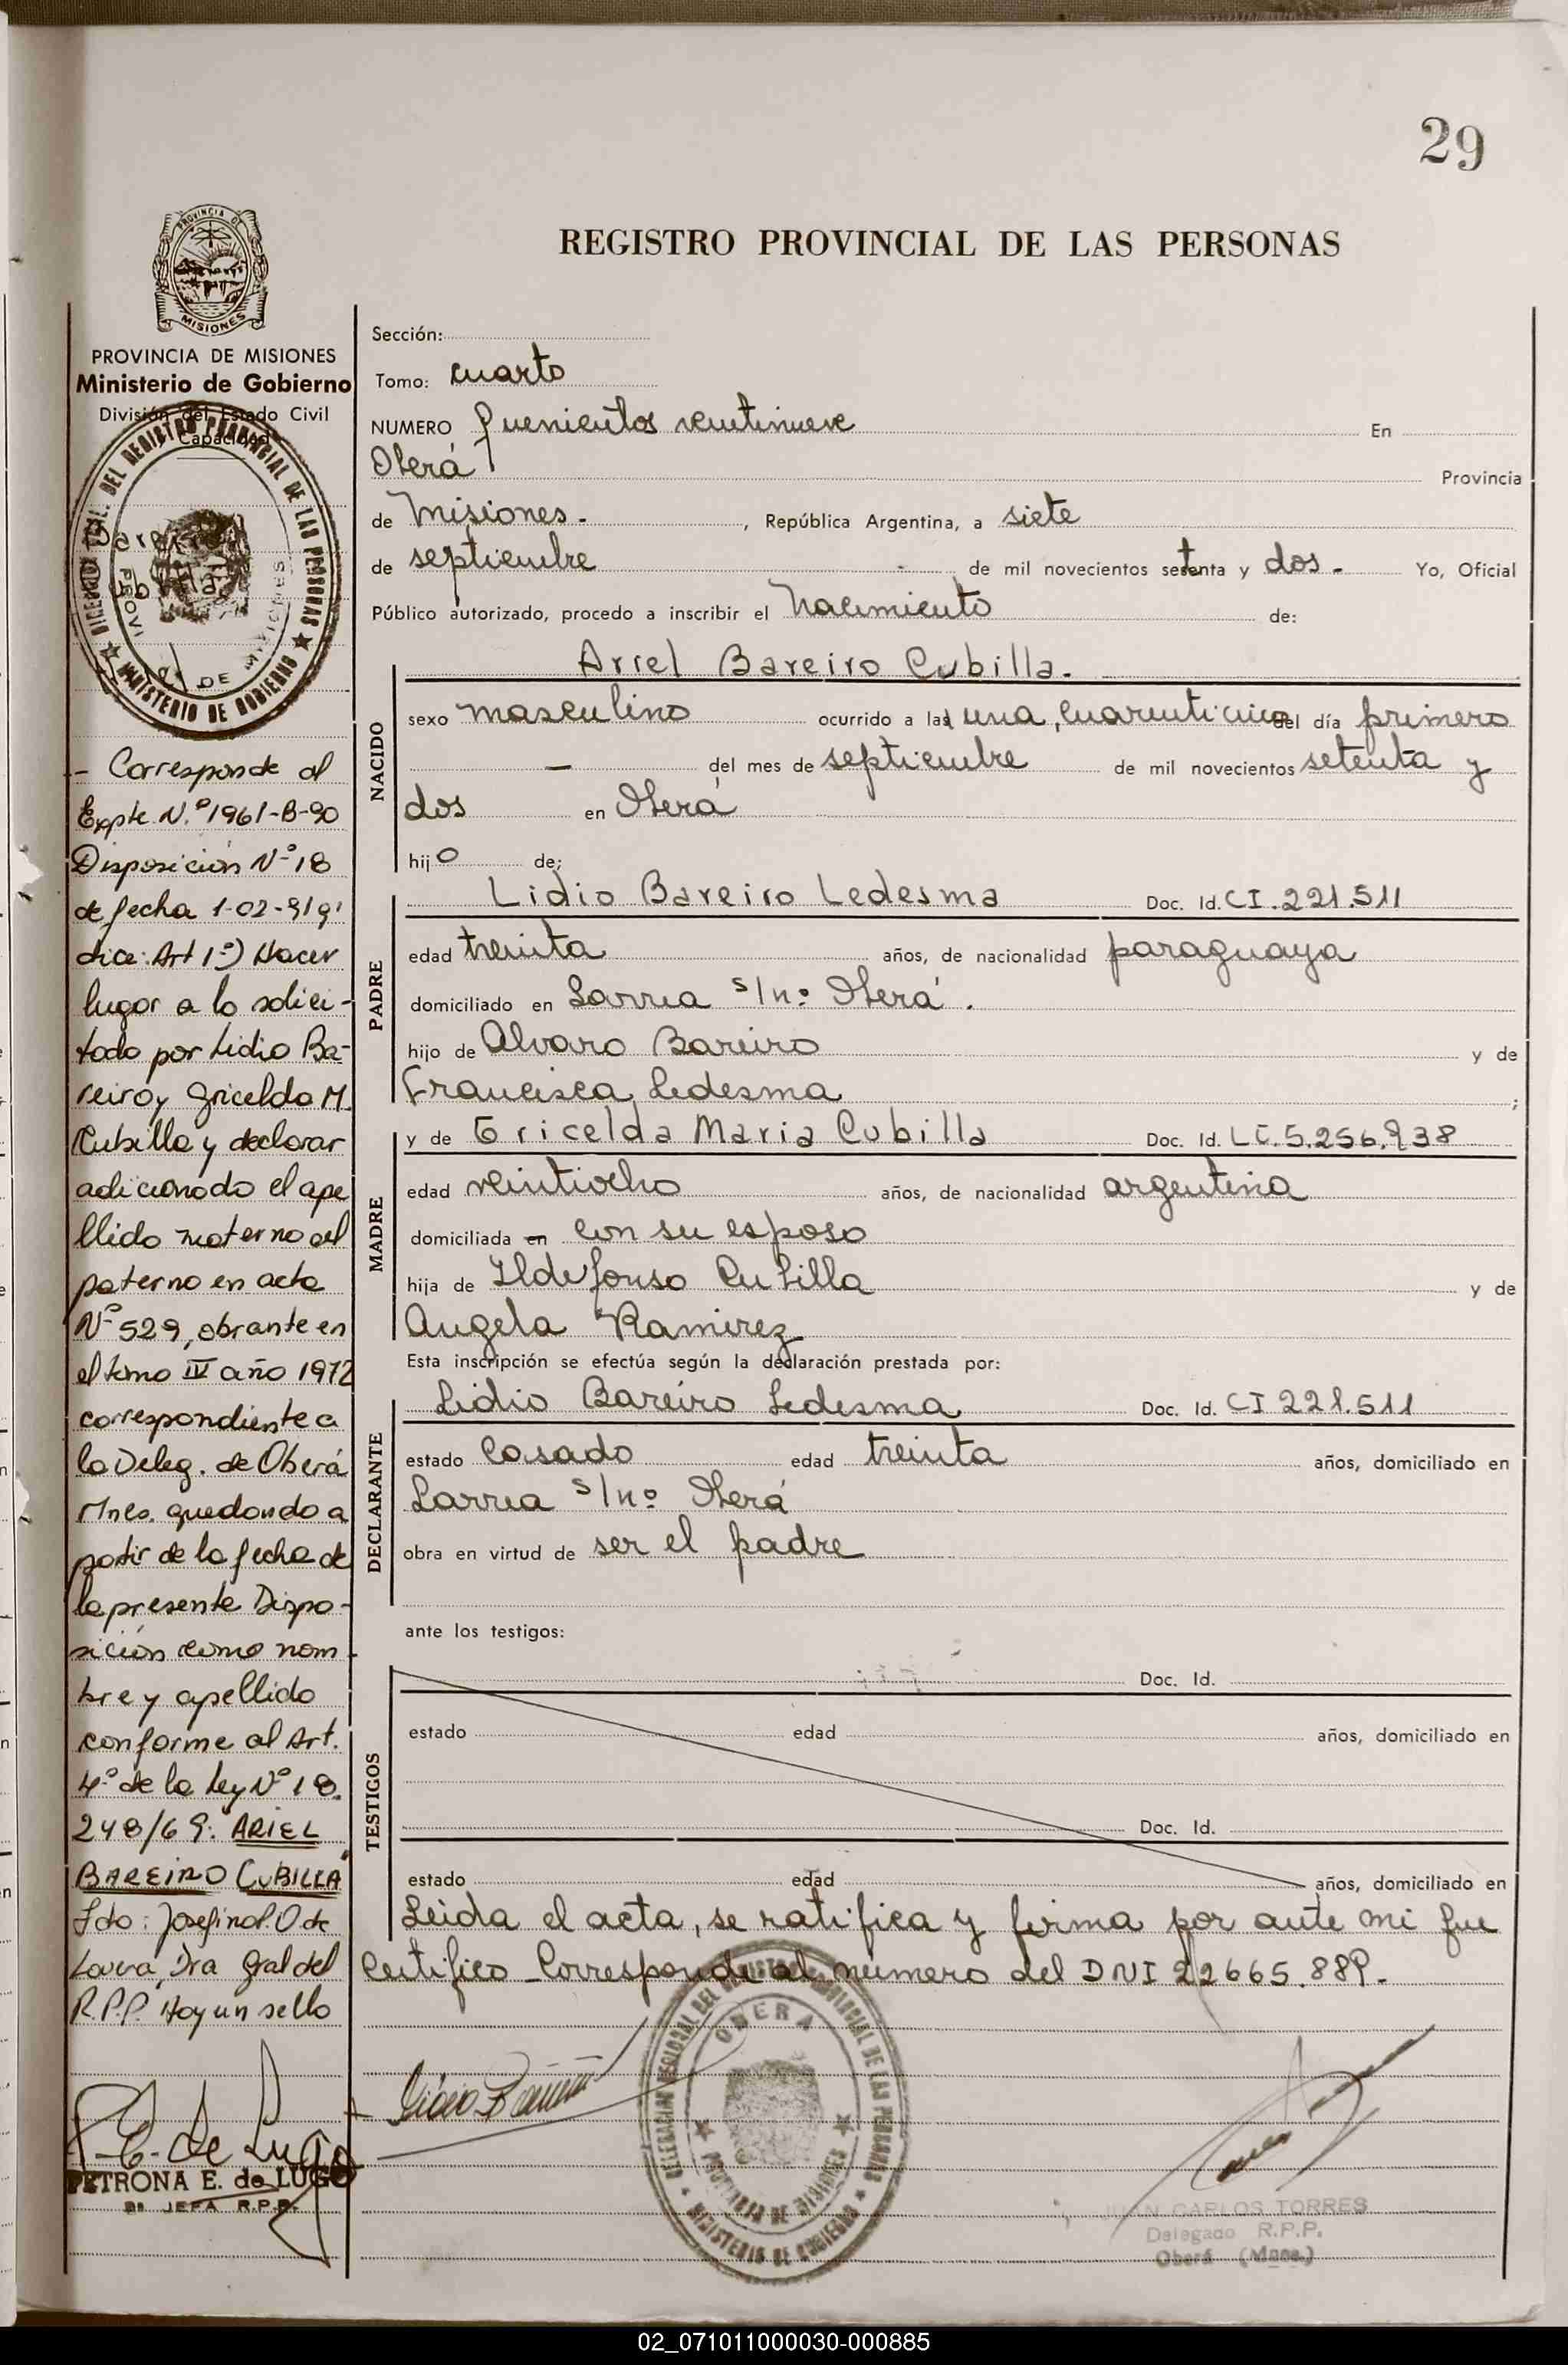 29
PROVINCIA DE
MISIONES
REGISTRO PROVINCIAL DE LAS PERSONAS
PROVINCIA DE MISIONES
Ministerio de Gobierno
División del Estado Civil
Capacidad
MINISTERIO DE GOBIERNO
- Corresponde al
Expte. N.º 1961-B-90
Disposición Nº 18
de fecha 1-02-91 q'
dice: Art 1º) Hacer
lugar a lo solici-
tado por Lidio Ba-
reiro y Gricelda M.
Cubilla y declarar
adicionado el ape
llido materno al
paterno en acta
Nº 529, obrante en
el tomo IV año 1972
correspondiente a
la Deleg. de Oberá
Mnes. quedando a
partir de la fecha de
la presente Dispo-
sición como nom-
bre y apellido
conforme al Art.
4º de la Ley Nº 18.
248/69: ARIEL
BAREIRO CUBILLA"
Fdo: Josefina P. O. de
Dra Gral del
R.P.P. Hay un sello
P. E. de Lugo
PETRONA E. de LUGO
JEFA R.P.P.
Sección:
Tomo: cuarto
NUMERO quinientos veintinueve En
Oberá Provincia
de Misiones. , República Argentina, a siete
de septiembre de mil novecientos setenta y dos - Yo, Oficial
Público autorizado, procedo a inscribir el Nacimiento de:
Ariel Bareiro Cubilla.
NACIDO
sexo masculino ocurrido a las una, cuarenticinco del día primero
— del mes de septiembre de mil novecientos setenta y
dos en Oberá
hijo de;
PADRE
Lidio Bareiro Ledesma Doc. Id. CI. 221.511
edad treinta años, de nacionalidad paraguaya
domiciliado en Larrea s/nº Oberá.
hijo de Alvaro Bareiro y de
Francisca Ledesma ;
MADRE
y de Gricelda Maria Cubilla Doc. Id. LC. 5.256.938
edad veintiocho años, de nacionalidad argentina
domiciliada en con su esposo
hija de Ildefonso Cubilla y de
Angela Ramirez
Esta inscripción se efectúa según la declaración prestada por:
DECLARANTE
Lidio Bareiro Ledesma Doc. Id. CI 221.511
estado Casado edad treinta años, domiciliado en
Larrea s/nº Oberá
obra en virtud de ser el padre
ante los testigos:
TESTIGOS
Doc. Id.
estado edad años, domiciliado en
Doc. Id.
estado edad años, domiciliado en
Leida el acta, se ratifica y firma por ante mi que
Certifico - Corresponde al número del DNI 22665.889.
Lidio Bareiro
DELEGACION REGIONAL DEL REGISTRO PROVINCIAL DE LAS PERSONAS
OBERA
PROVINCIA DE MISIONES
MINISTERIO DE GOBIERNO
JUAN CARLOS TORRES
Delegado R.P.P.
Oberá (Mnes.)
02_071011000030-000885